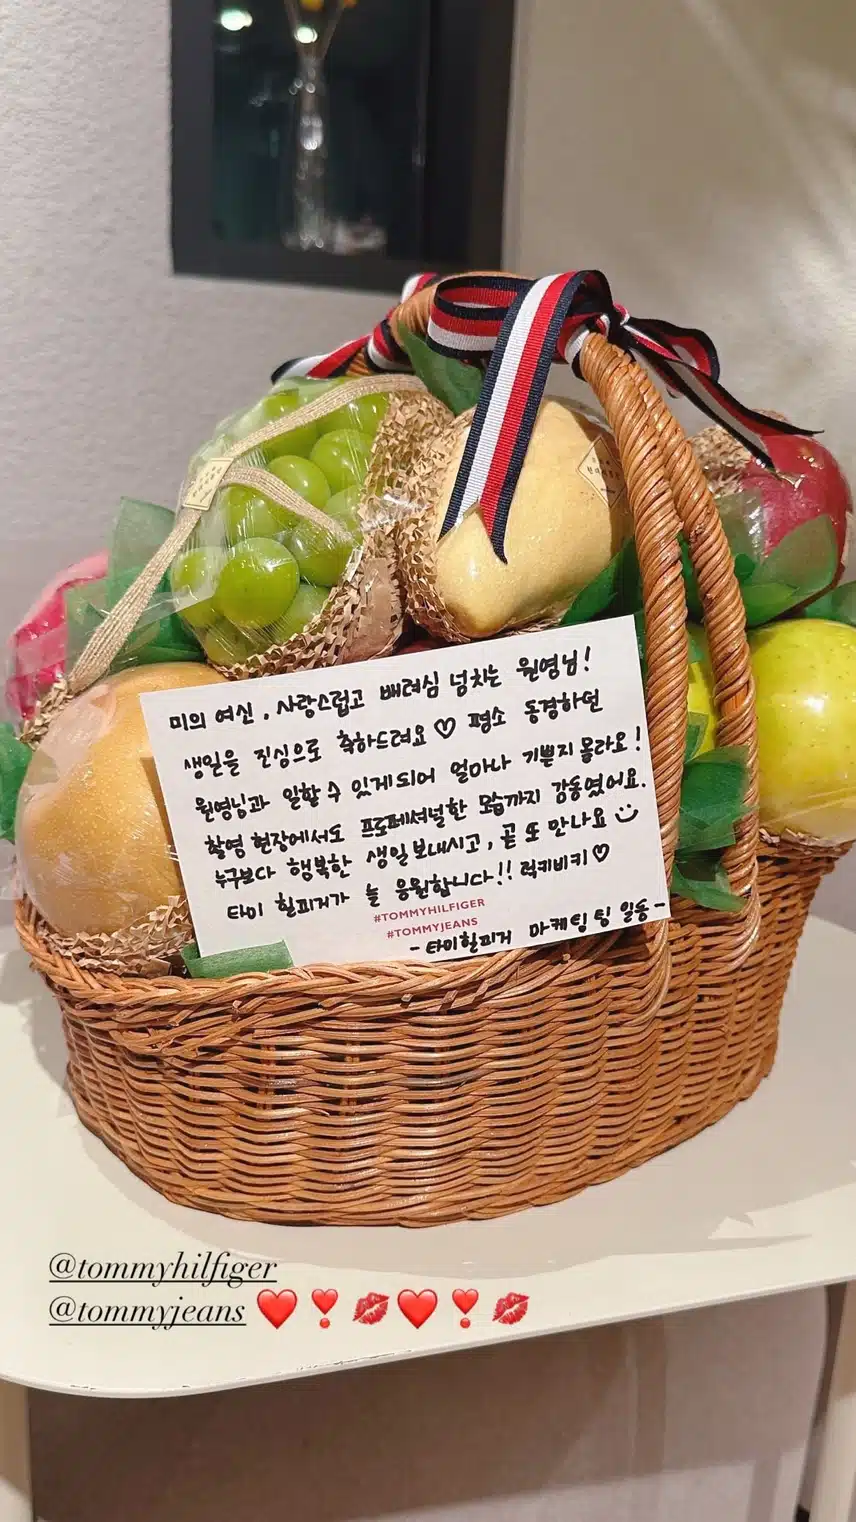 미의 여신, 사랑스럽고 배려심 넘치는 원영님!
생일을 진심으로 축하드려요♡ 평소 동경하던
원영님과 일할 수 있게되어 얼마나 기쁜지 몰라요!
촬영 현장에서도 프로페셔널한 모습까지 감동였어요.
누구보다 행복한 생일 보내시고, 곧 또 만나요
타미 힐피거가 늘 응원합니다!! 럭키비키♡
#TOMMYHILFIGER
#TOMMYJEANS
- 타미힐피거 마케팅 팀 일동 -
@tommyhilfiger
@tommyjeans ❤️❣️💋❤️❣️💋